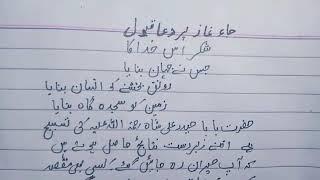 جاء غاز پر دعا قبول
شکر اس خدا کا
جس نے جہان بنایا
رونق بخشنے کو انسان بنایا
زمین کو سجدہ گاہ بنایا
حضرت بابا حیدر علی شاہ رحمۃ اللہ علیہ کی تسبیح
سے اتنے زبردست نتائج حاصل ہوئے ہیں
کہ آپ حیران رہ جائیں گے۔ کسی بھی مقصد